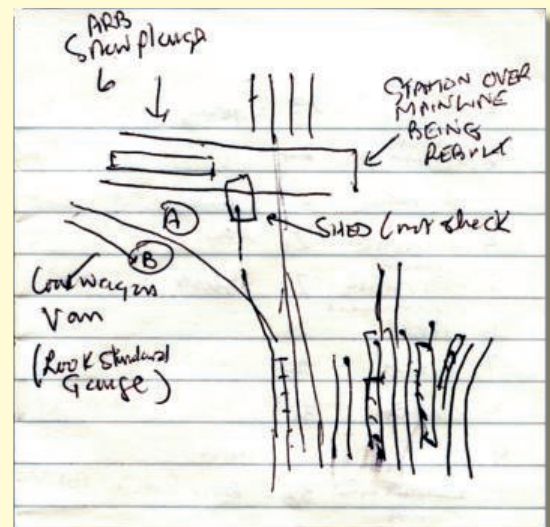 ARB
Snowplough
STATION OVER
MAINLINE
BEING
REBUILT
A
SHED (not check
B
Coal wagon
Van
(Look Standard
Gauge)